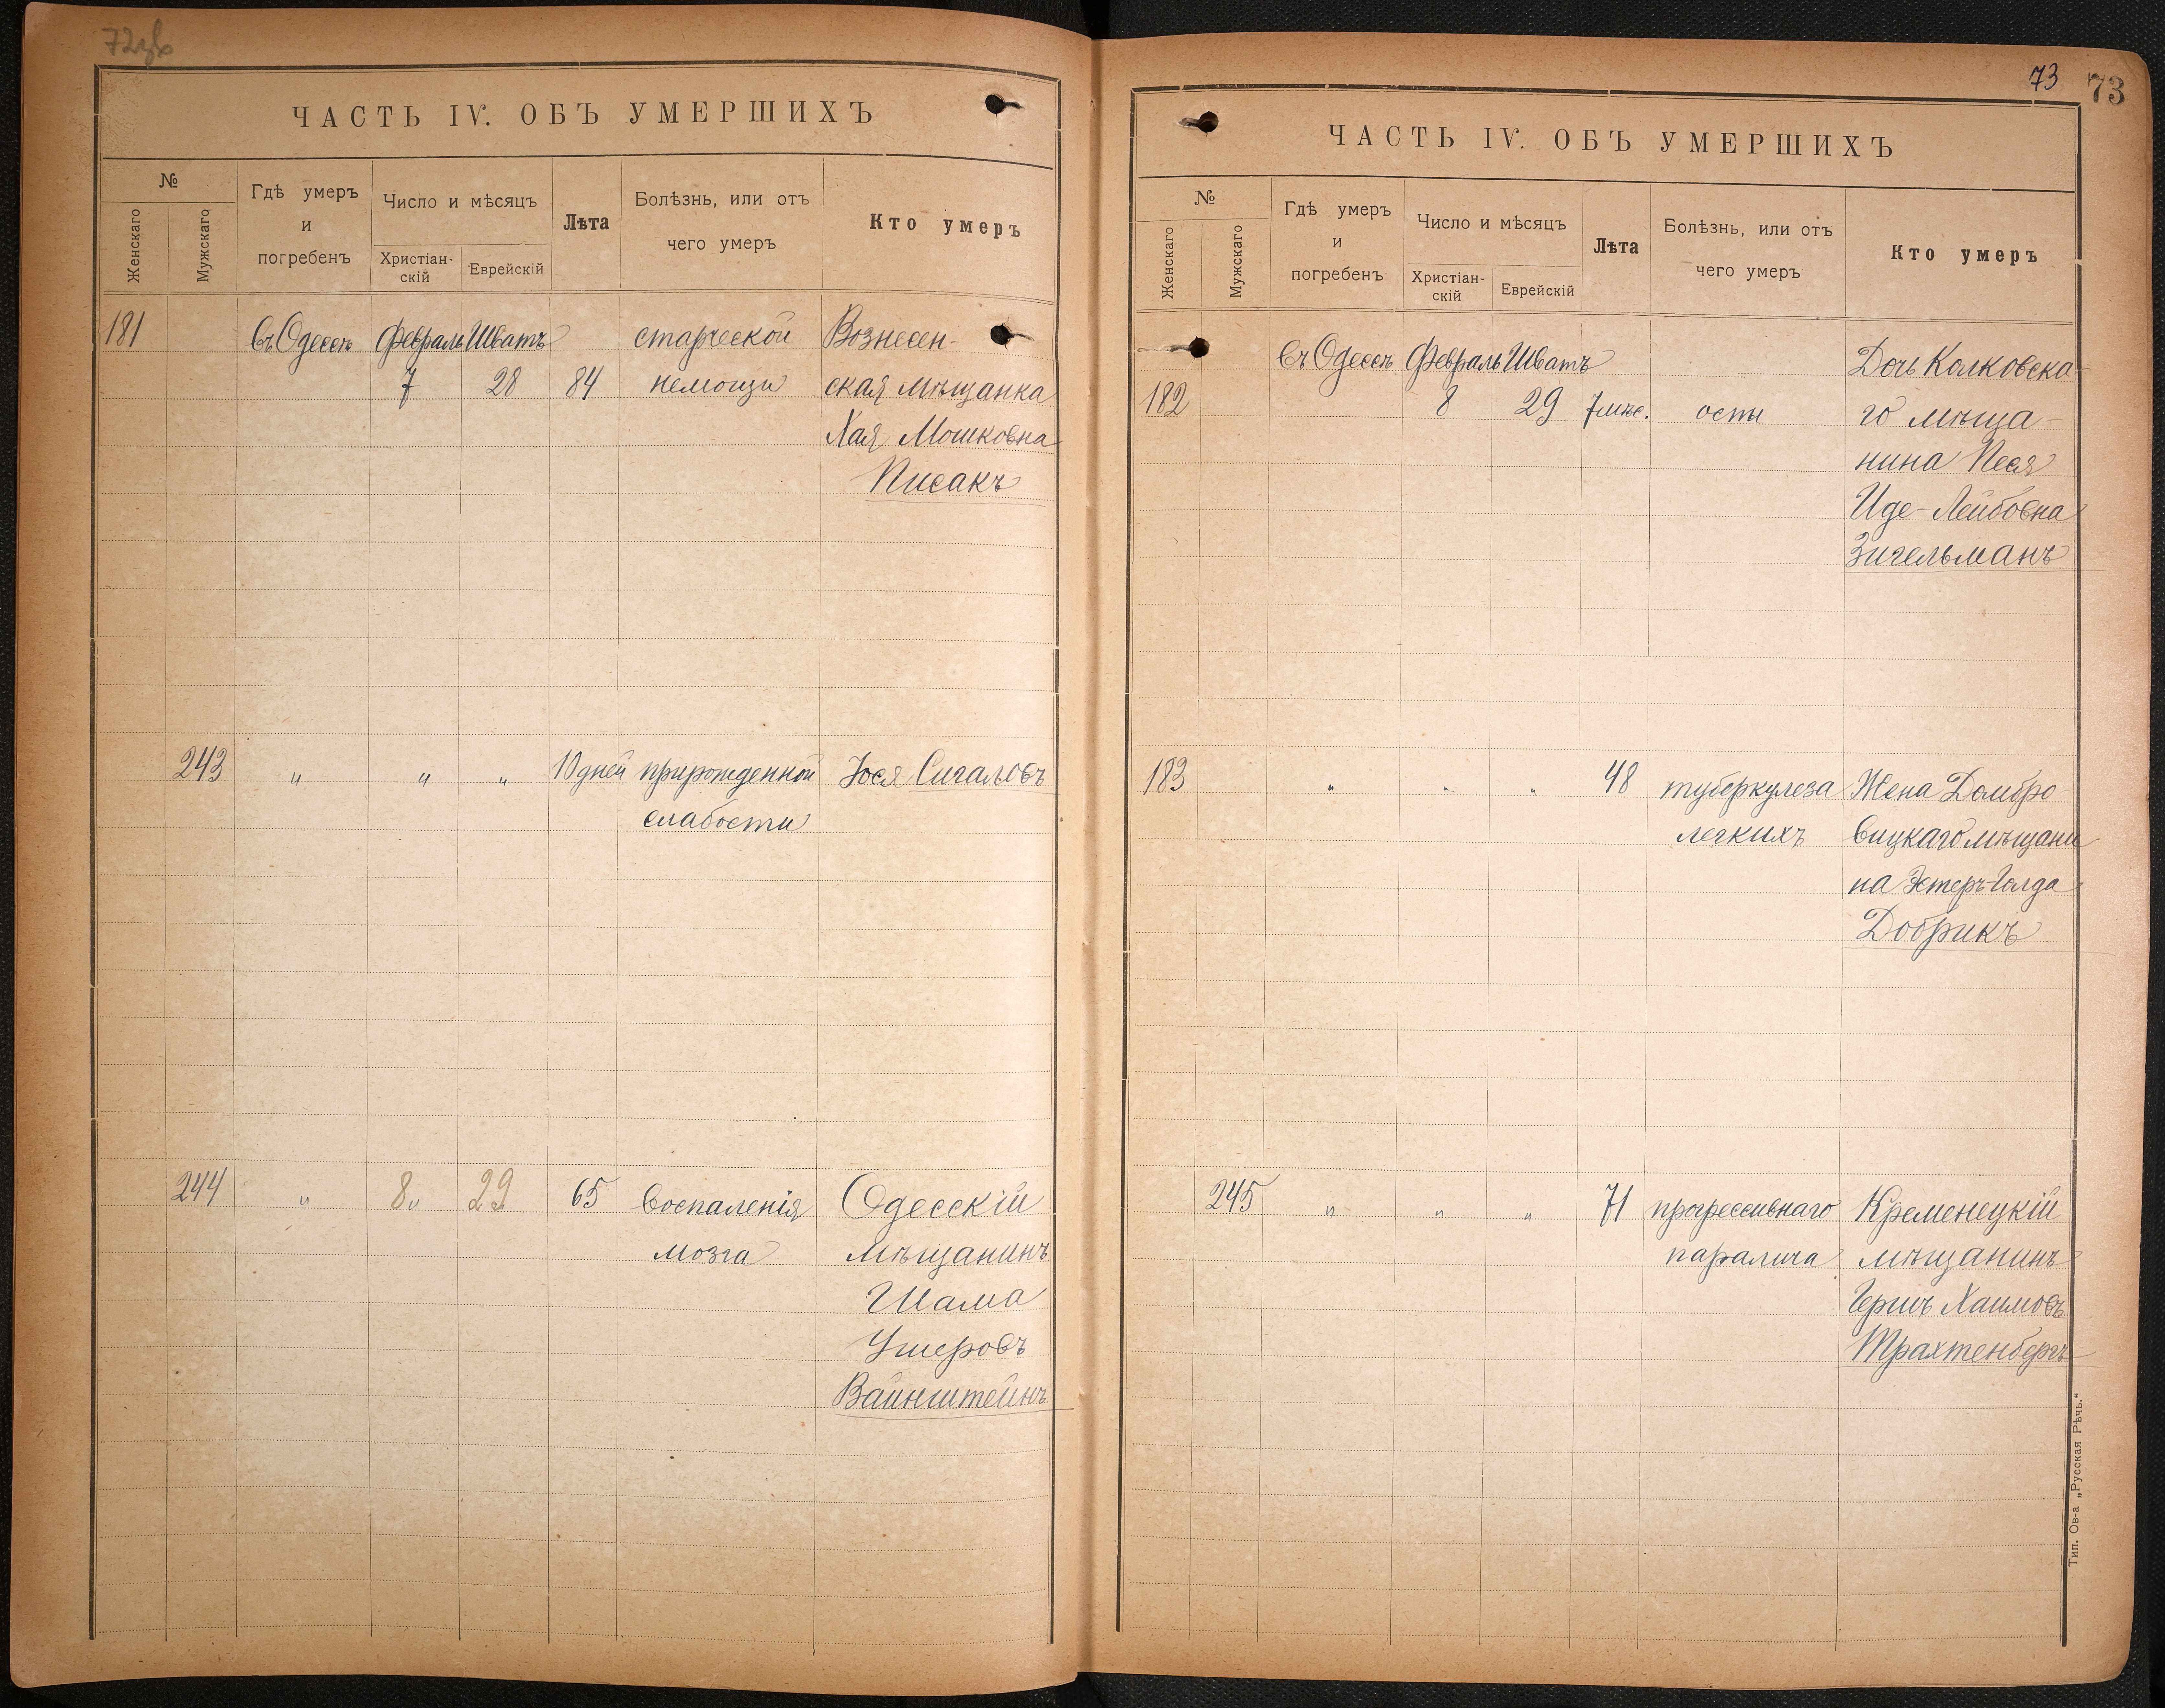 72об
ЧАСТЬ IV. ОБЪ УМЕРШИХЪ
№
Женскаго
Мужскаго
Гдѣ умеръ
и
погребенъ
Число и мѣсяцъ
Христіан-
скій
Еврейскій
Лѣта
Болѣзнь, или отъ
чего умеръ
Кто умеръ
181 въ Одессѣ Февраль Шватъ старческой Вознесен-
7 28 84 немощи ская мѣщанка
Хая Мошковна
Писакъ
243 " " " 10 дней прирожденной Іося Сигаловъ
слабости
244 " 8 " 29 65 воспаленія Одесскій
мозга мѣщанинъ
Шама
Ушеровъ
Вайнштейнъ
73 73
ЧАСТЬ IV. ОБЪ УМЕРШИХЪ
№
Женскаго
Мужскаго
Гдѣ умеръ
и
погребенъ
Число и мѣсяцъ
Христіан-
скій
Еврейскій
Лѣта
Болѣзнь, или отъ
чего умеръ
Кто умеръ
въ Одессѣ Февраль Шватъ Дочь Колковска-
182 8 29 7 мѣс. оспы го мѣща-
нина Песя
Иде-Лейбовна
Зигельманъ
183 " " " 48 туберкулеза Жена Домбро
легкихъ вицкаго мѣщани
на Эстеръ-Голда
Добрикъ
245 " " " 71 прогрессивнаго Кременецкій
паралича мѣщанинъ
Гершъ Хаимовъ
Трахтенбергъ
Тип. Ов-а „Русская Рѣчь."